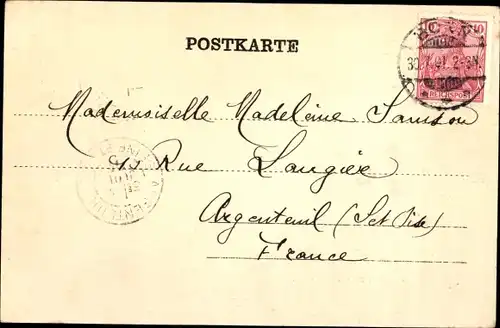 POSTKARTE
10
REICHSPOST
Mademoiselle Madeleine Samson
Rue Laugier
Argenteuil (Set Oise)
France